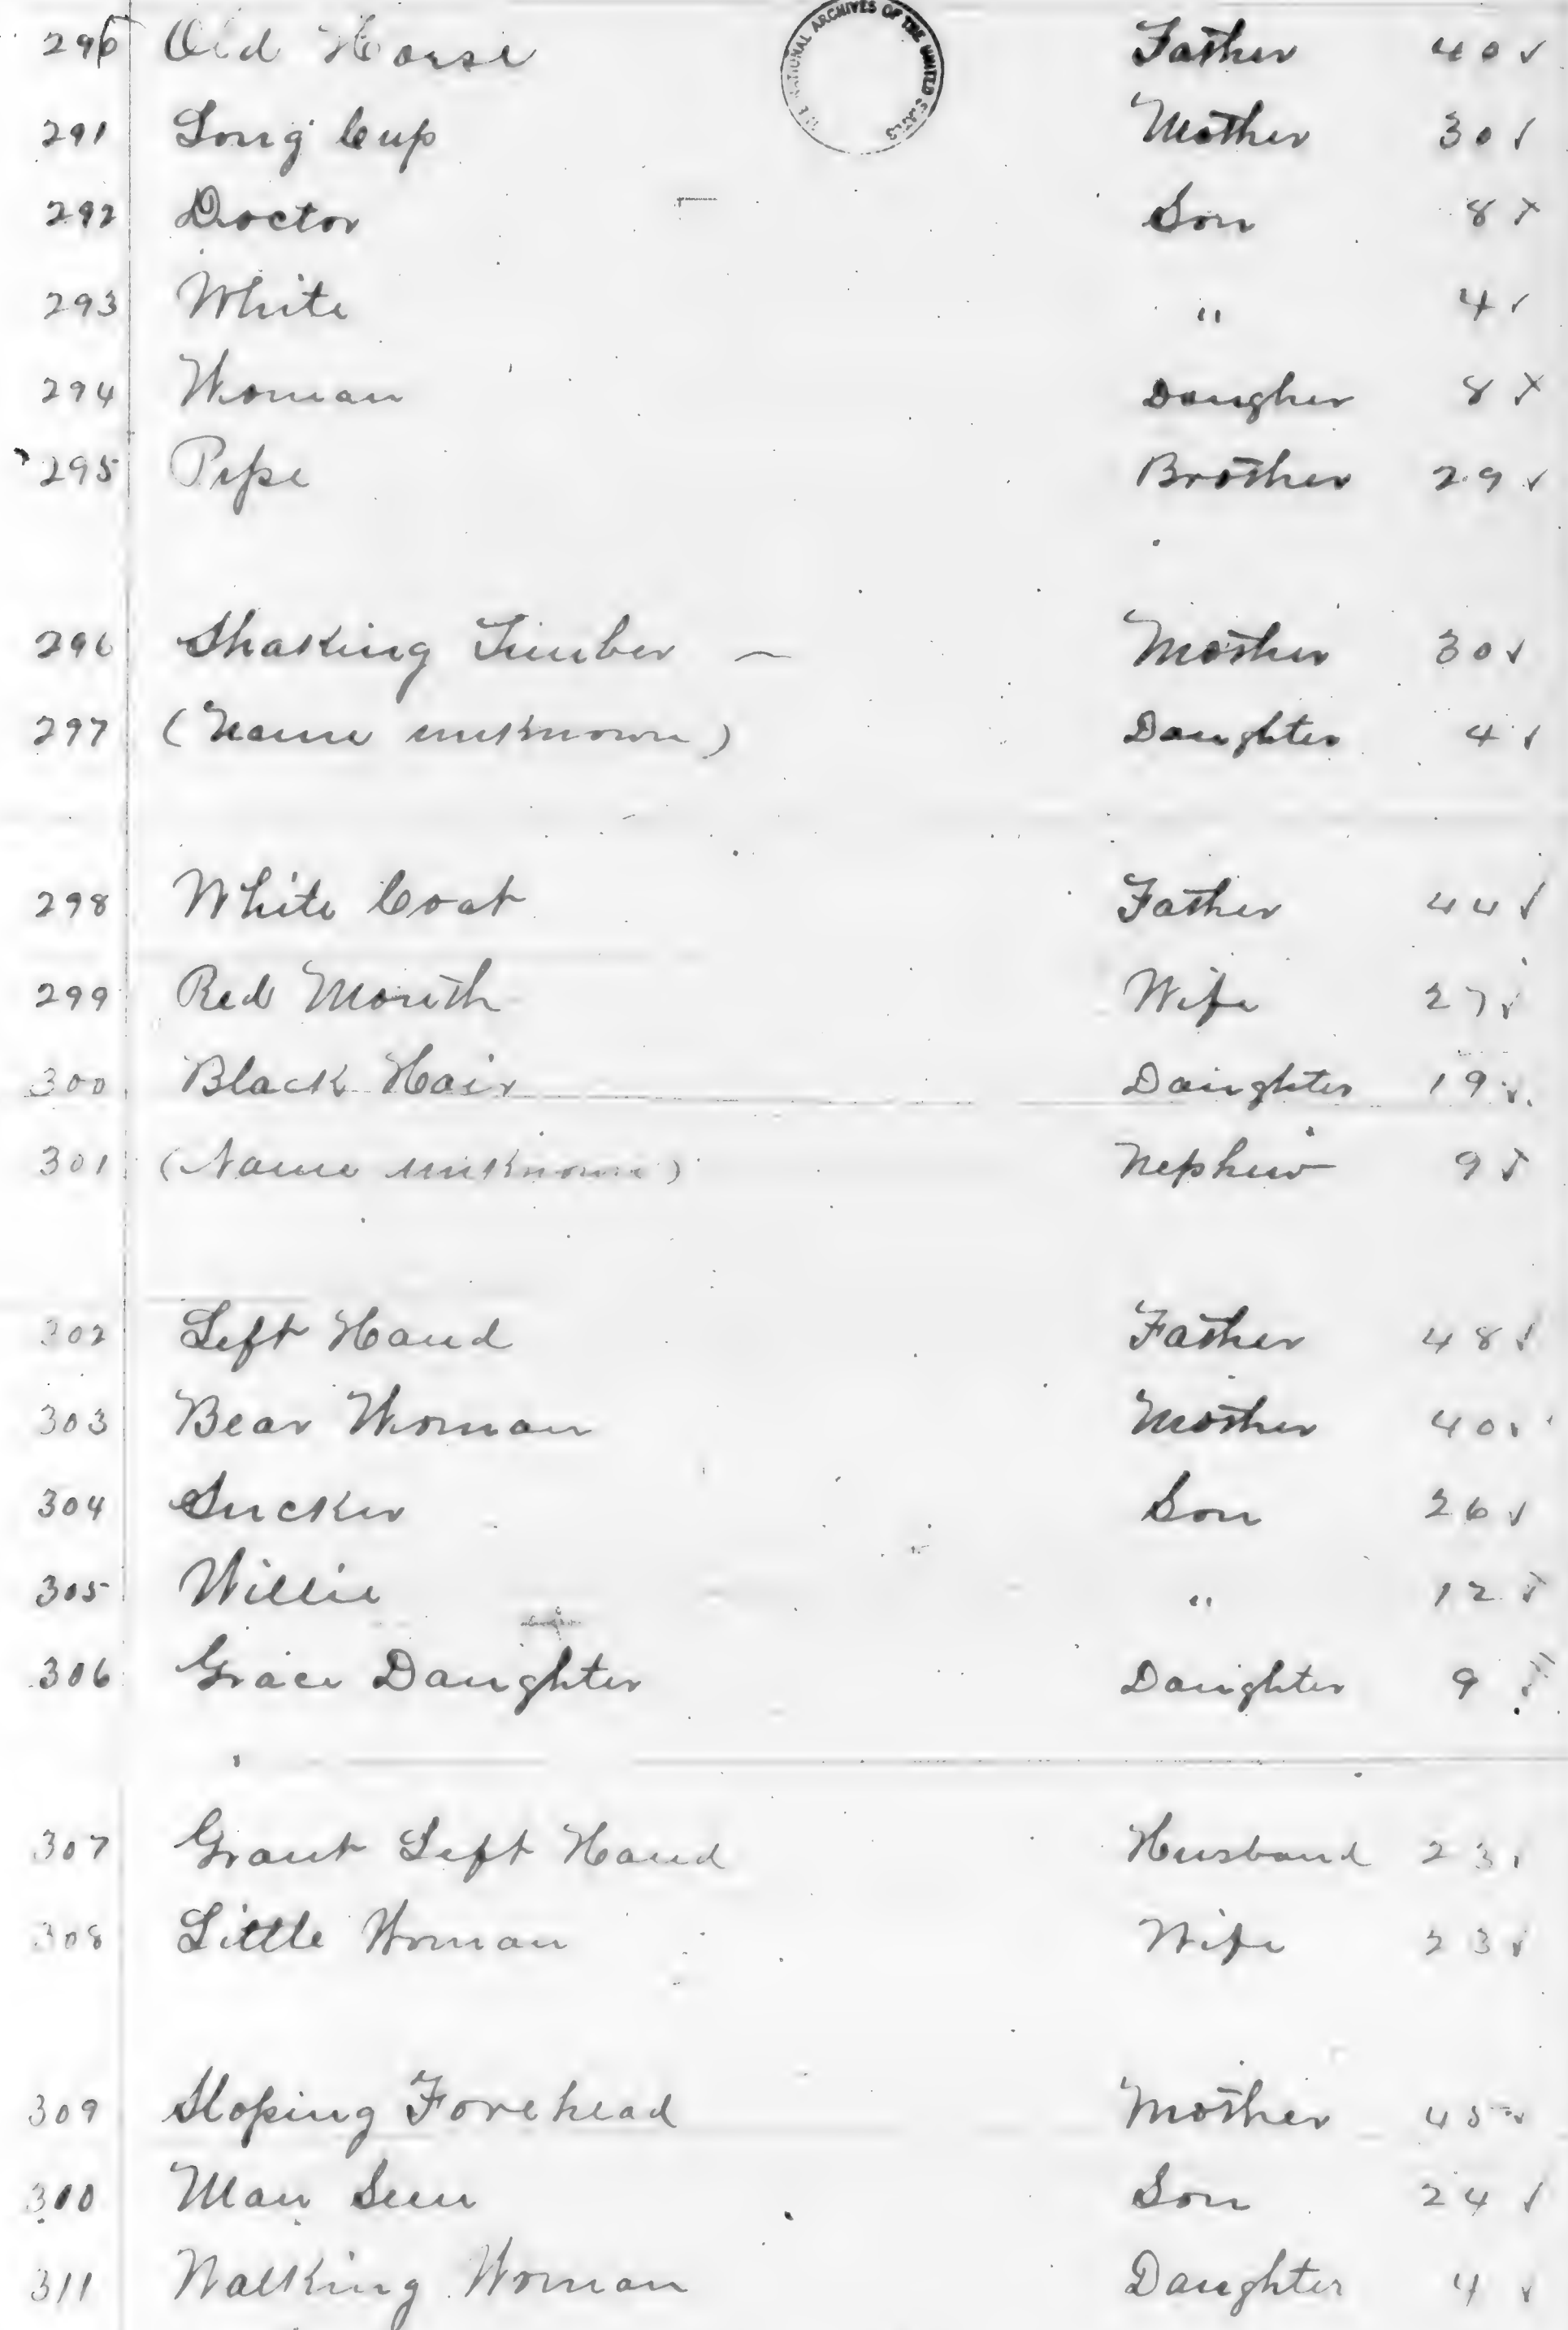 290 Old Horse Father 40 ✓
THE NATIONAL ARCHIVES OF THE UNITED STATES
291 Long Cup Mother 30 ✓
292 Doctor Son 8 x
293 White " 4 ✓
294 Woman Daugher 8 x
295 Pipe Brother 29 ✓
296 Shaking Timber Mother 30 ✓
297 (Name unknown) Daughter 4 ✓
298 White Coat Father 44 ✓
299 Red Mouth Wife 27 ✓
300 Black Hair Daughter 19 ✓
301 (Name unknown) Nephew 9 x
302 Left Hand Father 48 ✓
303 Bear Woman Mother 40 ✓
304 Sucker Son 26 ✓
305 Willie " 12 x
306 Grace Daughter Daughter 9
307 Grant Left Hand Husband 23 ✓
308 Little Woman Wife 23 ✓
309 Sloping Forehead Mother 45 ✓
310 Man Seen Son 24 ✓
311 Walking Woman Daughter 4 ✓